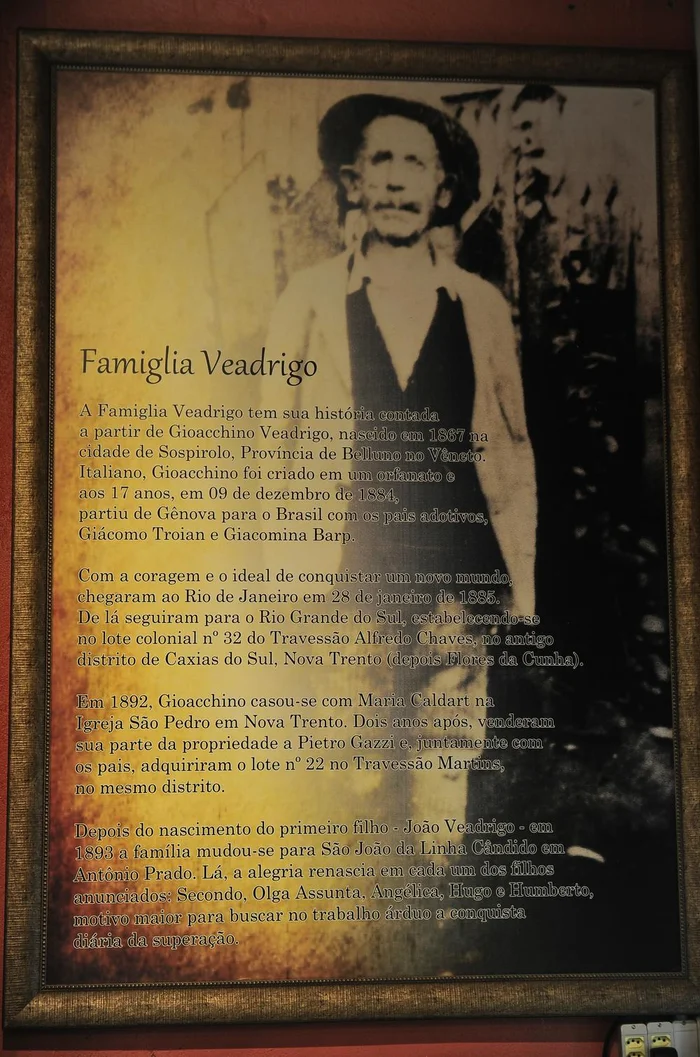 Famiglia Veadrigo
A Famiglia Veadrigo tem sua história contada
a partir de Gioacchino Veadrigo, nascido em 1867 na
cidade de Sospirolo, Província de Belluno no Vêneto.
Italiano, Gioacchino foi criado em um orfanato e
aos 17 anos, em 09 de dezembro de 1884,
partiu de Gênova para o Brasil com os pais adotivos,
Giácomo Troian e Giacomina Barp.
Com a coragem e o ideal de conquistar um novo mundo,
chegaram ao Rio de Janeiro em 28 de janeiro de 1885.
De lá seguiram para o Rio Grande do Sul, estabelecendo-se
no lote colonial nº 32 do Travessão Alfredo Chaves, no antigo
distrito de Caxias do Sul, Nova Trento (depois Flores da Cunha).
Em 1892, Gioacchino casou-se com Maria Caldart na
Igreja São Pedro em Nova Trento. Dois anos após, venderam
sua parte da propriedade a Pietro Gazzi e, juntamente com
os pais, adquiriram o lote nº 22 no Travessão Martins,
no mesmo distrito.
Depois do nascimento do primeiro filho - João Veadrigo - em
1893 a família mudou-se para São João da Linha Cândido em
Antônio Prado. Lá, a alegria renascia em cada um dos filhos
anunciados: Secondo, Olga Assunta, Angélica, Hugo e Humberto,
motivo maior para buscar no trabalho árduo a conquista
diária da superação.